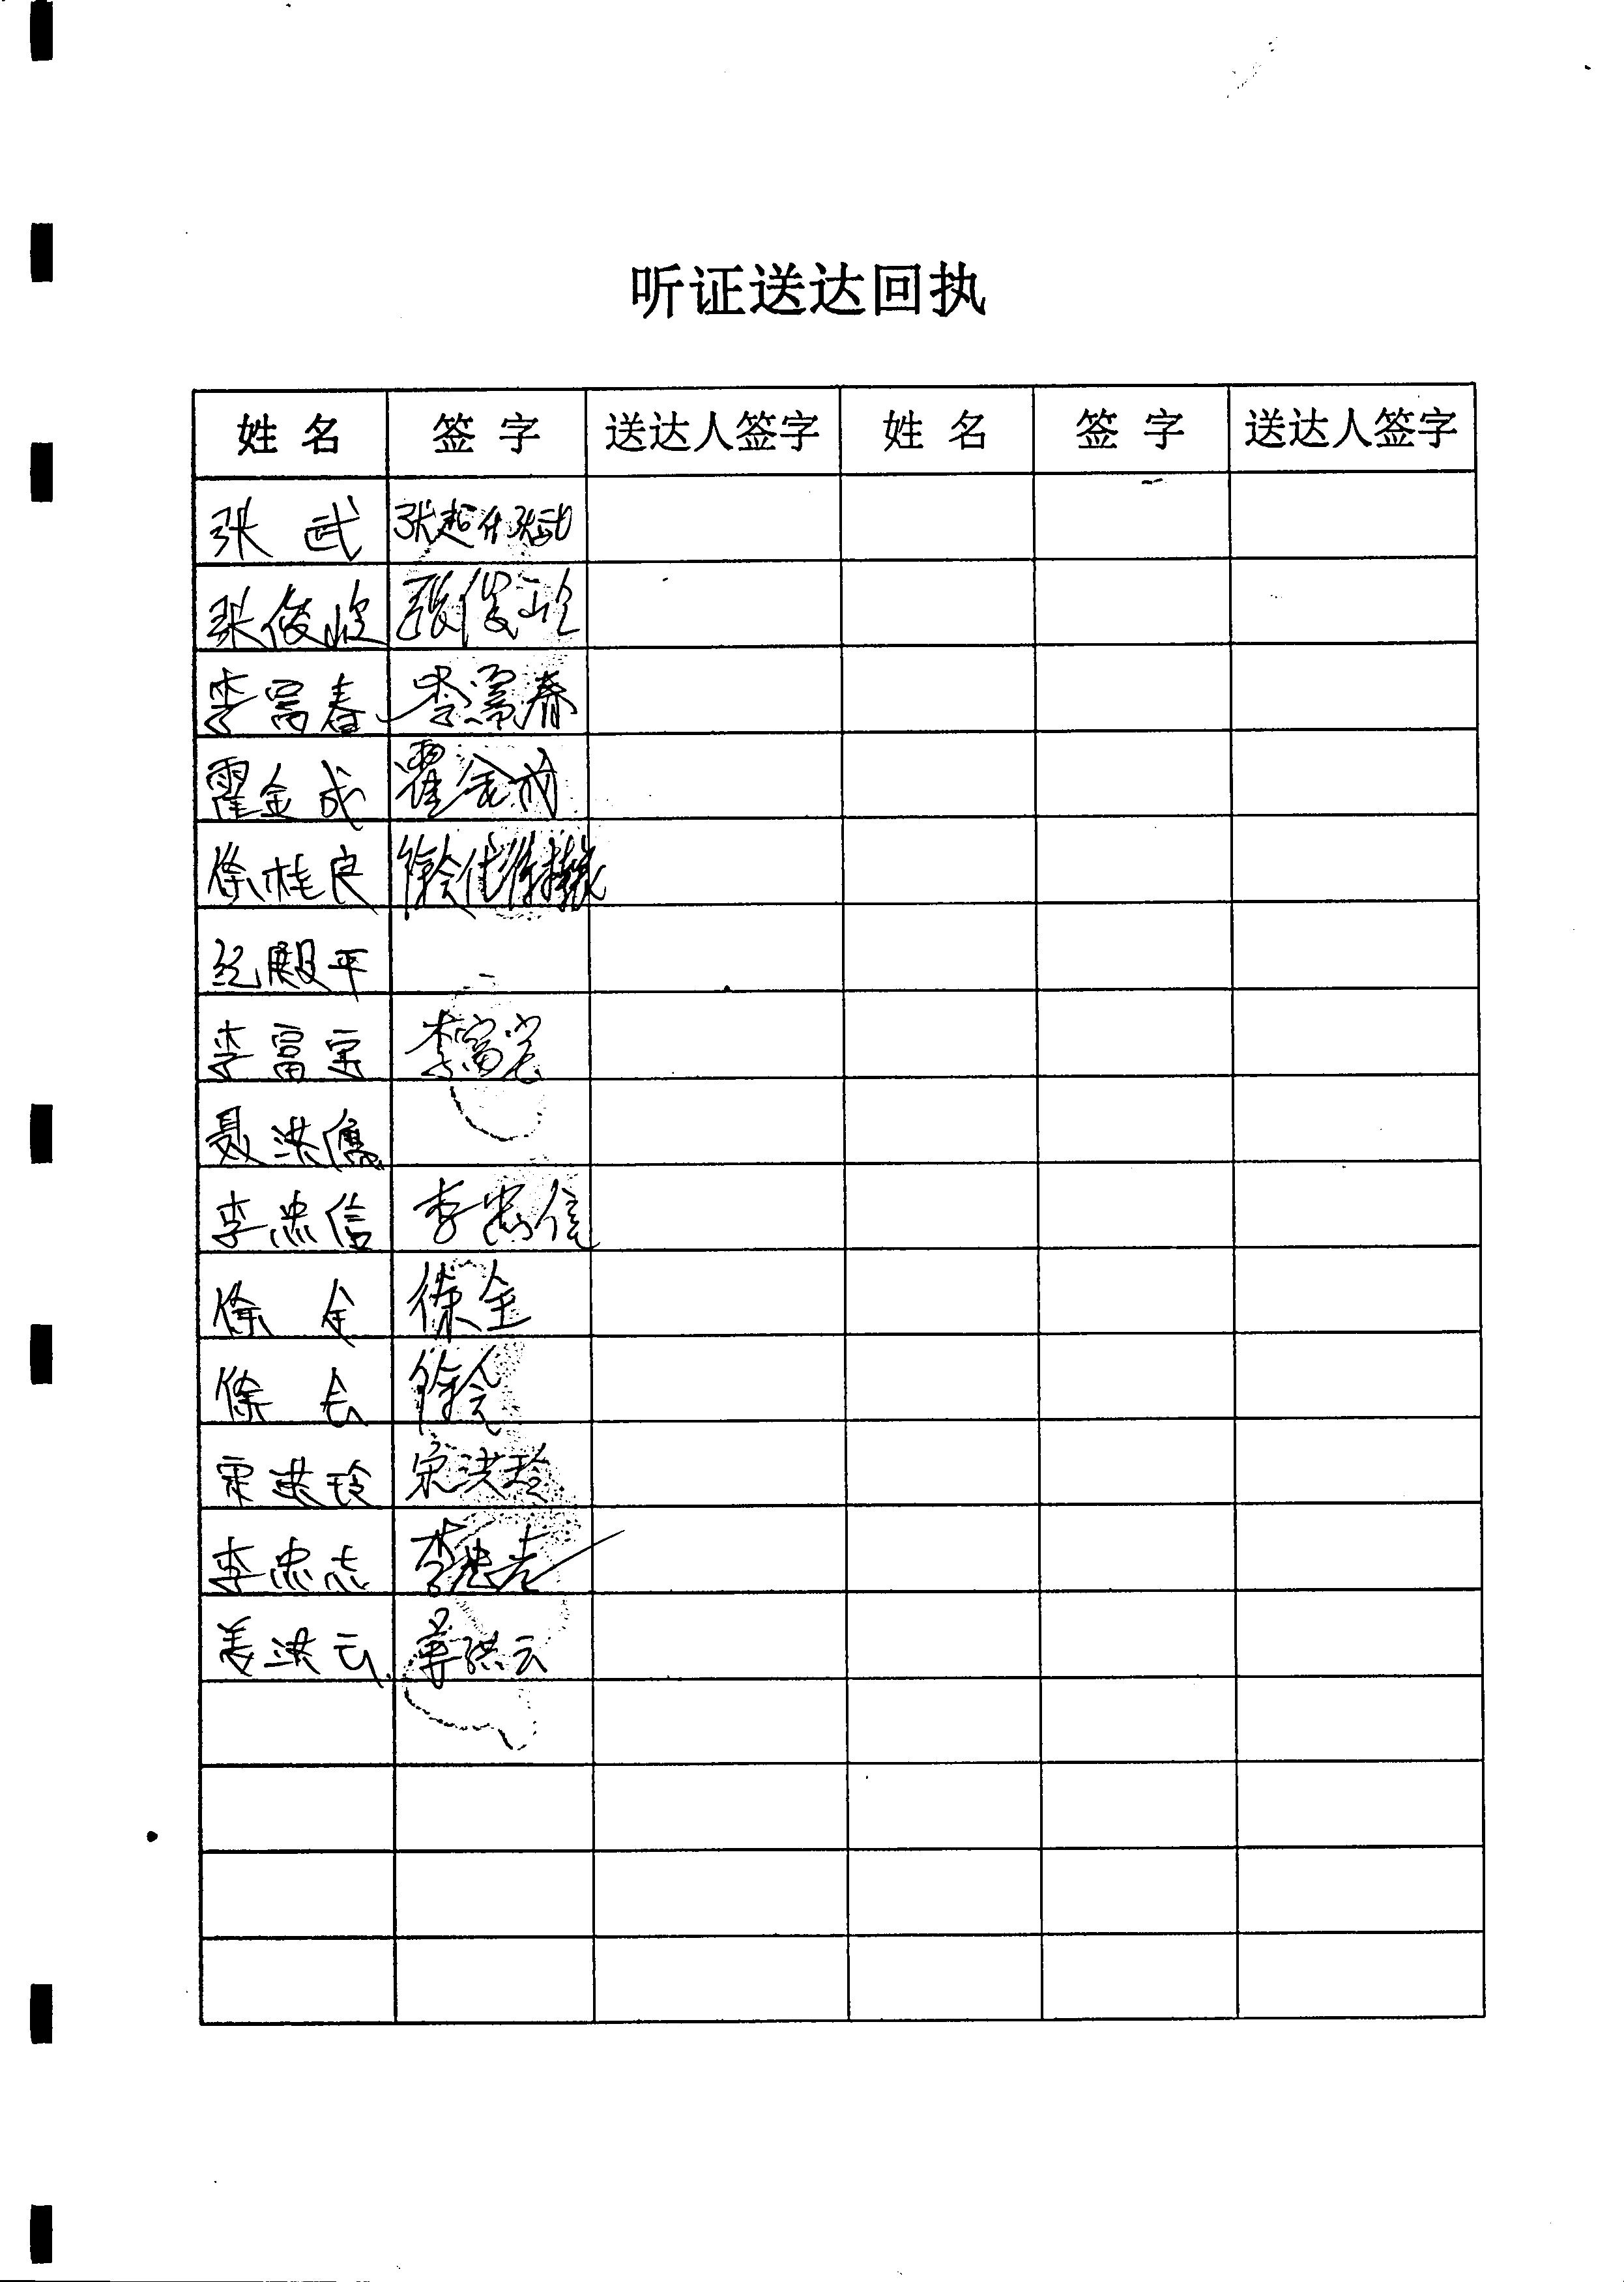 听证送达回执
姓 名 签 字 送达人签字 姓 名 签 字 送达人签字
张 武 张超代张武
张俊 张俊
李富春 李富春
霍金成 霍金成
徐桂良 徐会代徐桂良
纪殿平
李富宝 李富
聂洪
李忠信 李忠信
徐 全 徐全
徐 会 徐会
宋洪玲 宋洪玲
李忠志 李忠志
姜洪云 姜洪云